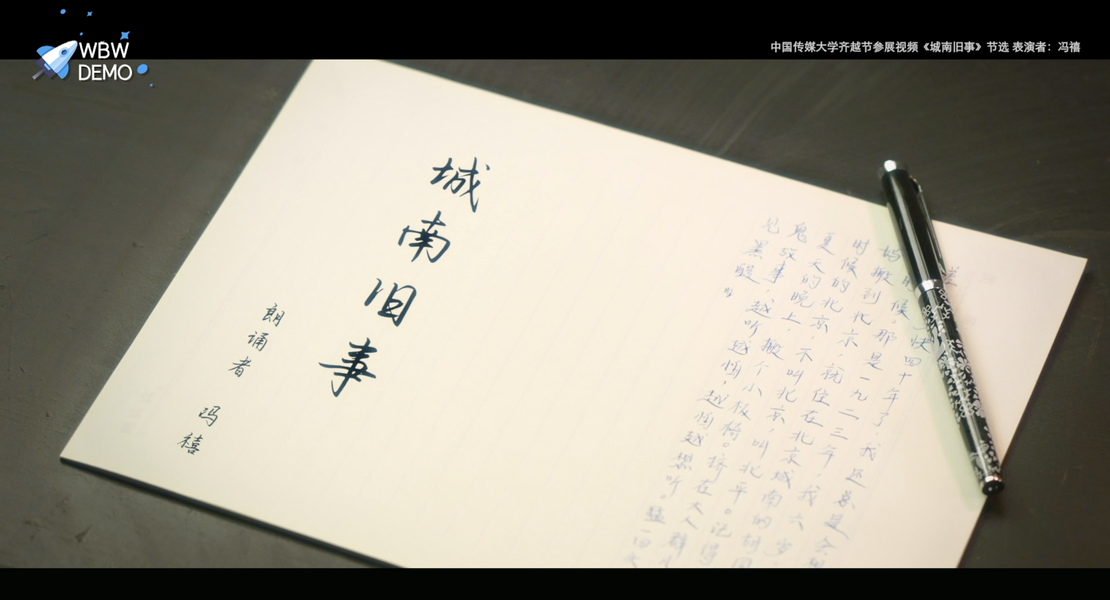 WBW
DEMO
中国传媒大学齐越节参展视频《城南旧事》节选 表演者：冯禧
城南旧事
朗诵者 冯禧
时候，快四十年了，我还总是会想
搬到北京，那是一九二三年，我六岁
时候的北京，就住在北京城南的胡同
天的晚上，不叫北京，叫北平。记得
鬼故事，搬个小板椅。挤在大人群
越听越怕，越怕越想听。猛一回头